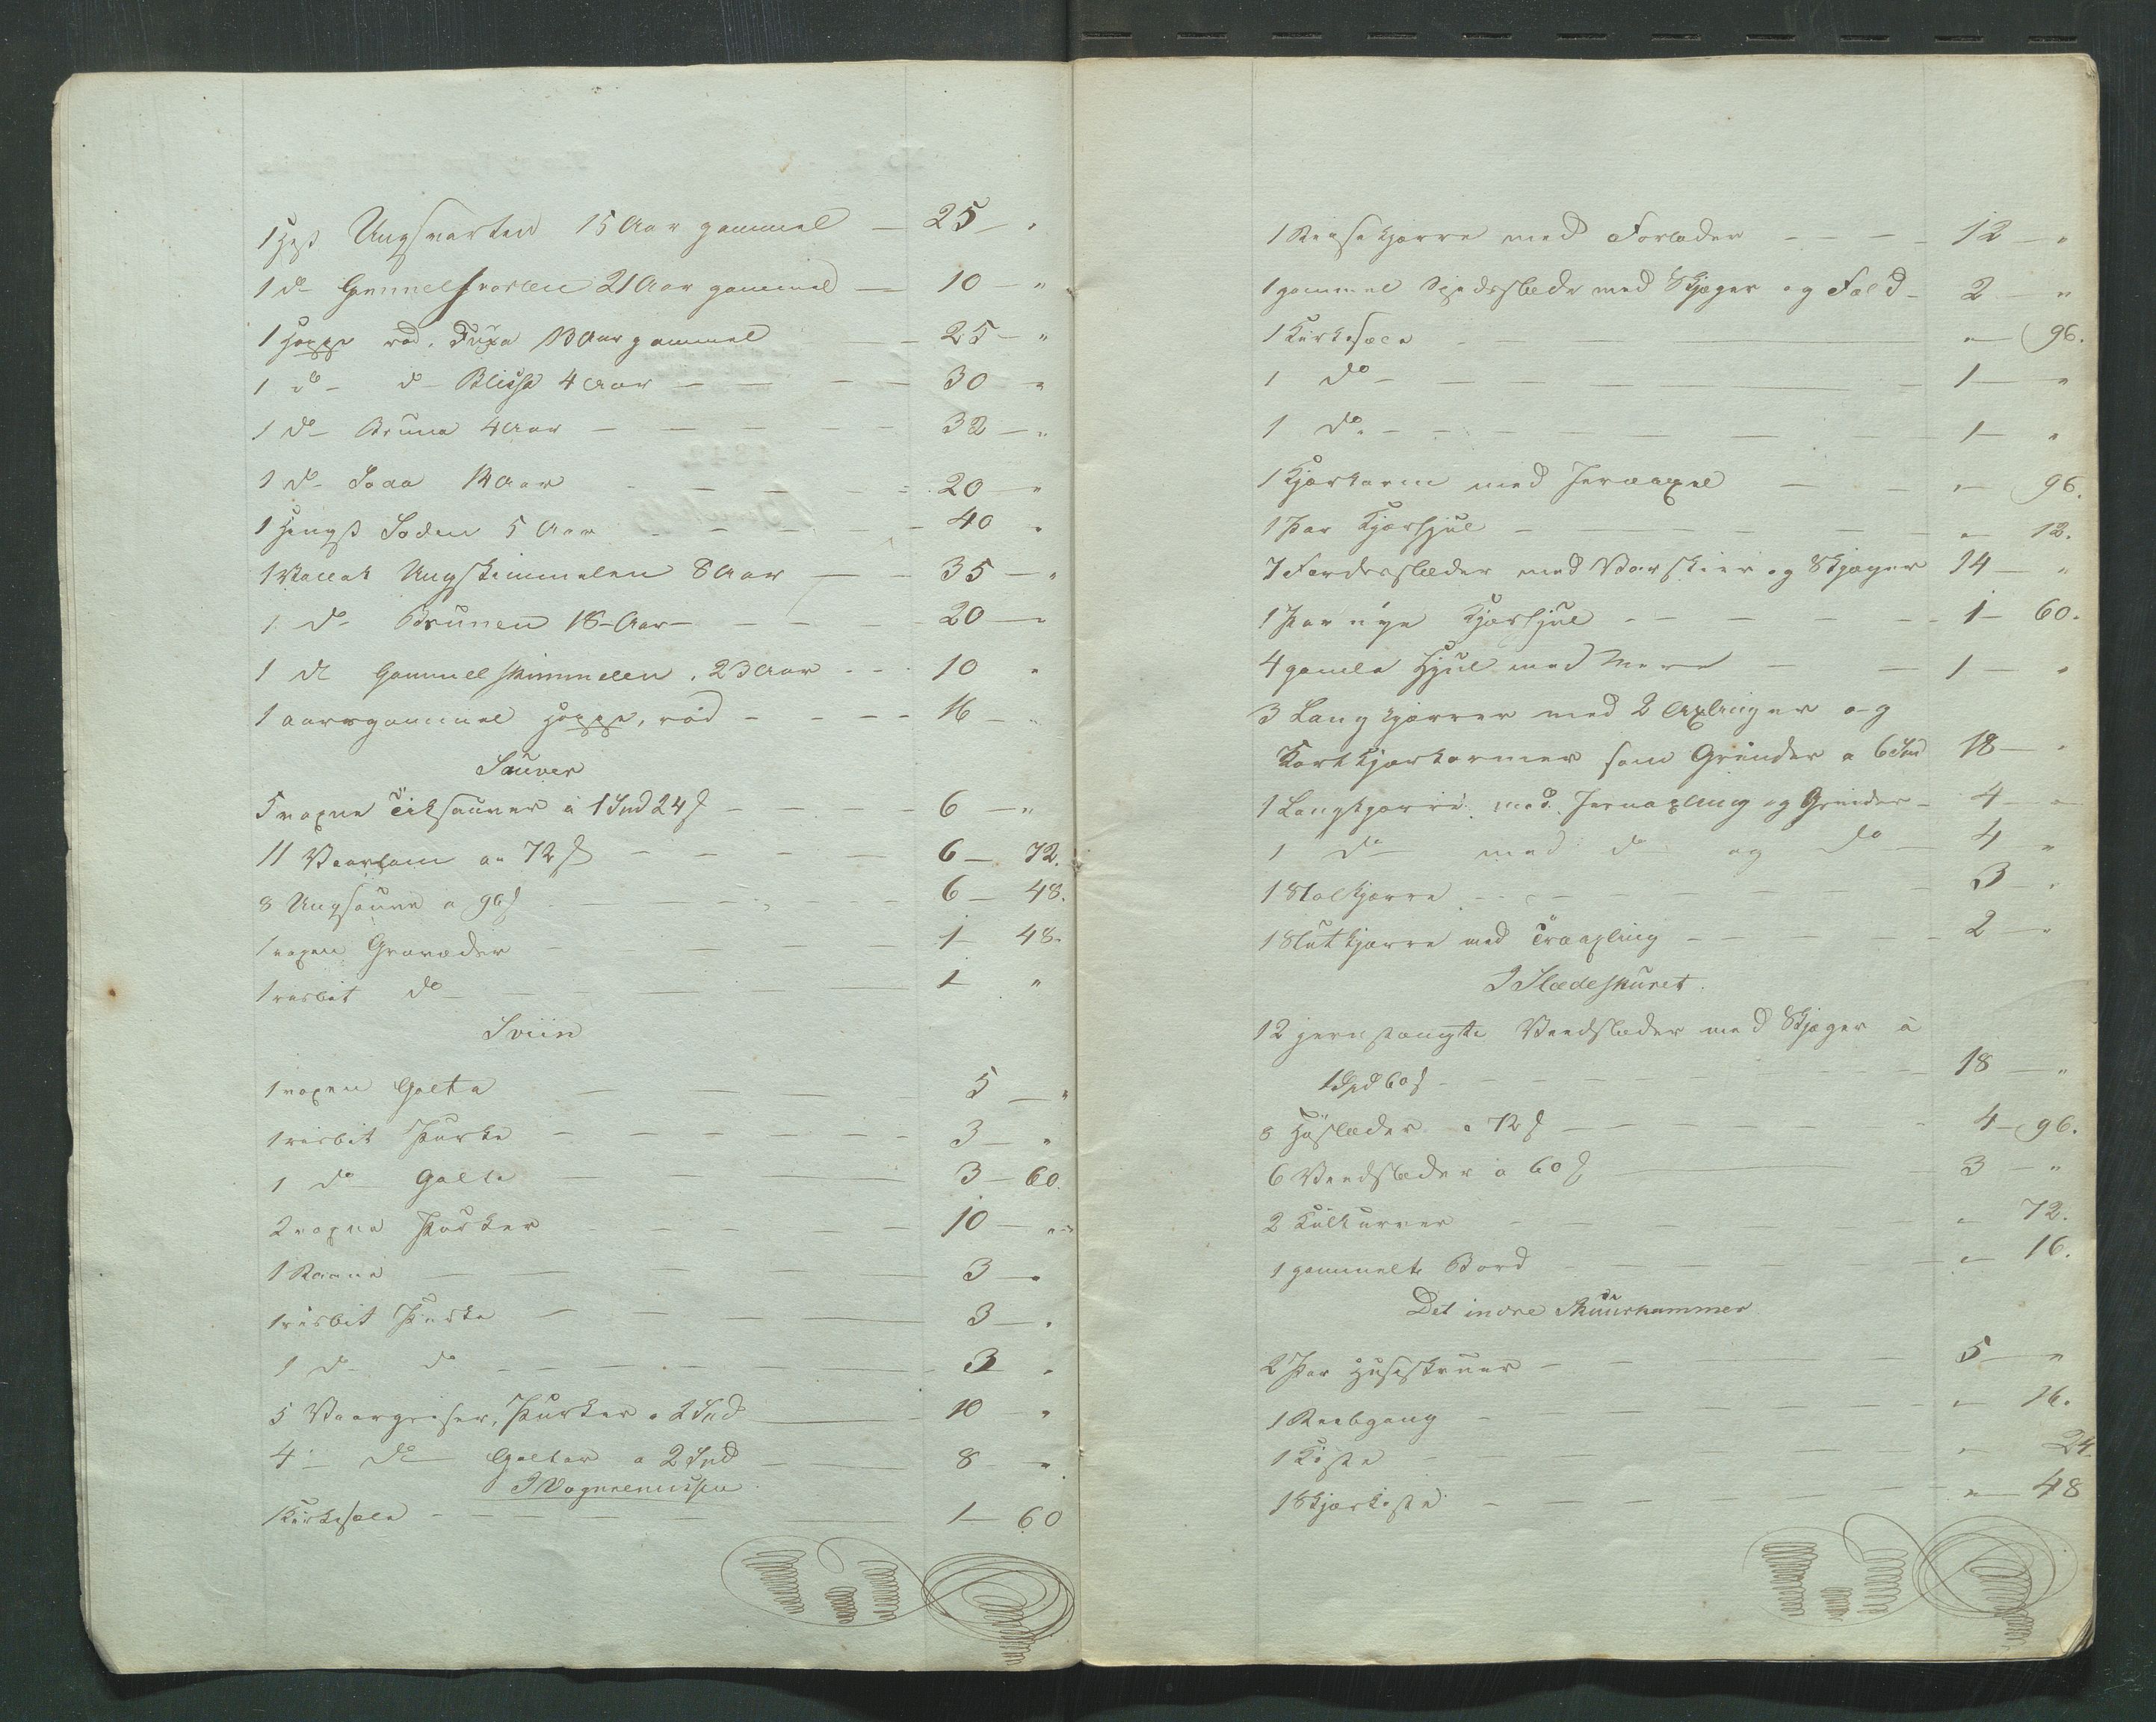 1 Hest Ungsvarten 15 Aar gammel — 25 — "
1 do Gammelsvarten 21 Aar gammel — 10 — "
1 Hoppe rød, Fuxa 13 Aar gammel — 25 — "
1 do — do Blissa 4 Aar — 30 "
1 do Bruna 4 Aar — 32 — "
1 do 14 Aar — 20 — "
1 Hingst 5 Aar — 40 "
1 Vallak Ungskimmelen 8 Aar — 35 — "
1 do Brunen 16 Aar — 20 — "
1 do Gammelskimmelen, 23 Aar — 10 "
1 aarsgammel Hoppe, rød — 16 — "
Sauver
5 voxne Tiksauver à 1 Spd 24 s — 6 — "
11 Vaarlam a 72 s — 6 — 72.
8 Ungsauver a 96 s — 6 — 48.
1 voxen Graavæder — 1 — 48.
1 do — 1 — "
Sviin
1 voxen Galte — 5 — "
1 Purke — 3 — "
1 do Galte — 3 — 60.
2 voxne Purker — 10 — "
1 Raane — 3 — "
1 Purke — 3 — "
1 do do — 3 "
5 Vaargriser, Purker a 2 Spd — 10 "
4 — do Galter a 2 Spd — 8 — "
I Vognremissen
1 Kirkesæle — 1 — 60
1 Reisekjærre med Forlæder — 12 — "
1 gammel Spidsslæde med Skjæger og Fæld — 2 — "
1 Kirkesæle — " — 96.
1 do — 1 — "
1 do — 1 — "
1 Kjærkarm med Jernaxel — " — 96.
1 Par Kjærhjul — " 12.
7 Færdesslæder med Varskier og Skjæger 14 — "
1 Par nye Kjærhjul — 1 — 60.
4 gamle Hjul med mere — 1 — "
3 Langkjærrer med 2 Axlinger og
Kortkjærkarmer som Grinder a 6 Spd 18 — "
1 Langkjærre med Jernaxling og Grinder — 4 — "
1 do med do og do — 4 "
1 Stolkjærre — 3 — "
1 Stutkjærre med Træaxling — 2 — "
I Slædeskuret.
12 jernstangte Veedslæder med Skjæger à
1 Spd 60 s — 18 — "
8 Høslæder a 72 s — 4 — 96.
6 Veedslæder a 60 s — 3 — "
2 Kulkurver — " 72.
1 gammelt Bord — " — 16.
Det indre Skuurkammer
2 Par Husskruer — 5 — "
1 Reebgang — " — 16.
1 Kiste — " 24.
1 Skjærkiste — " — 48